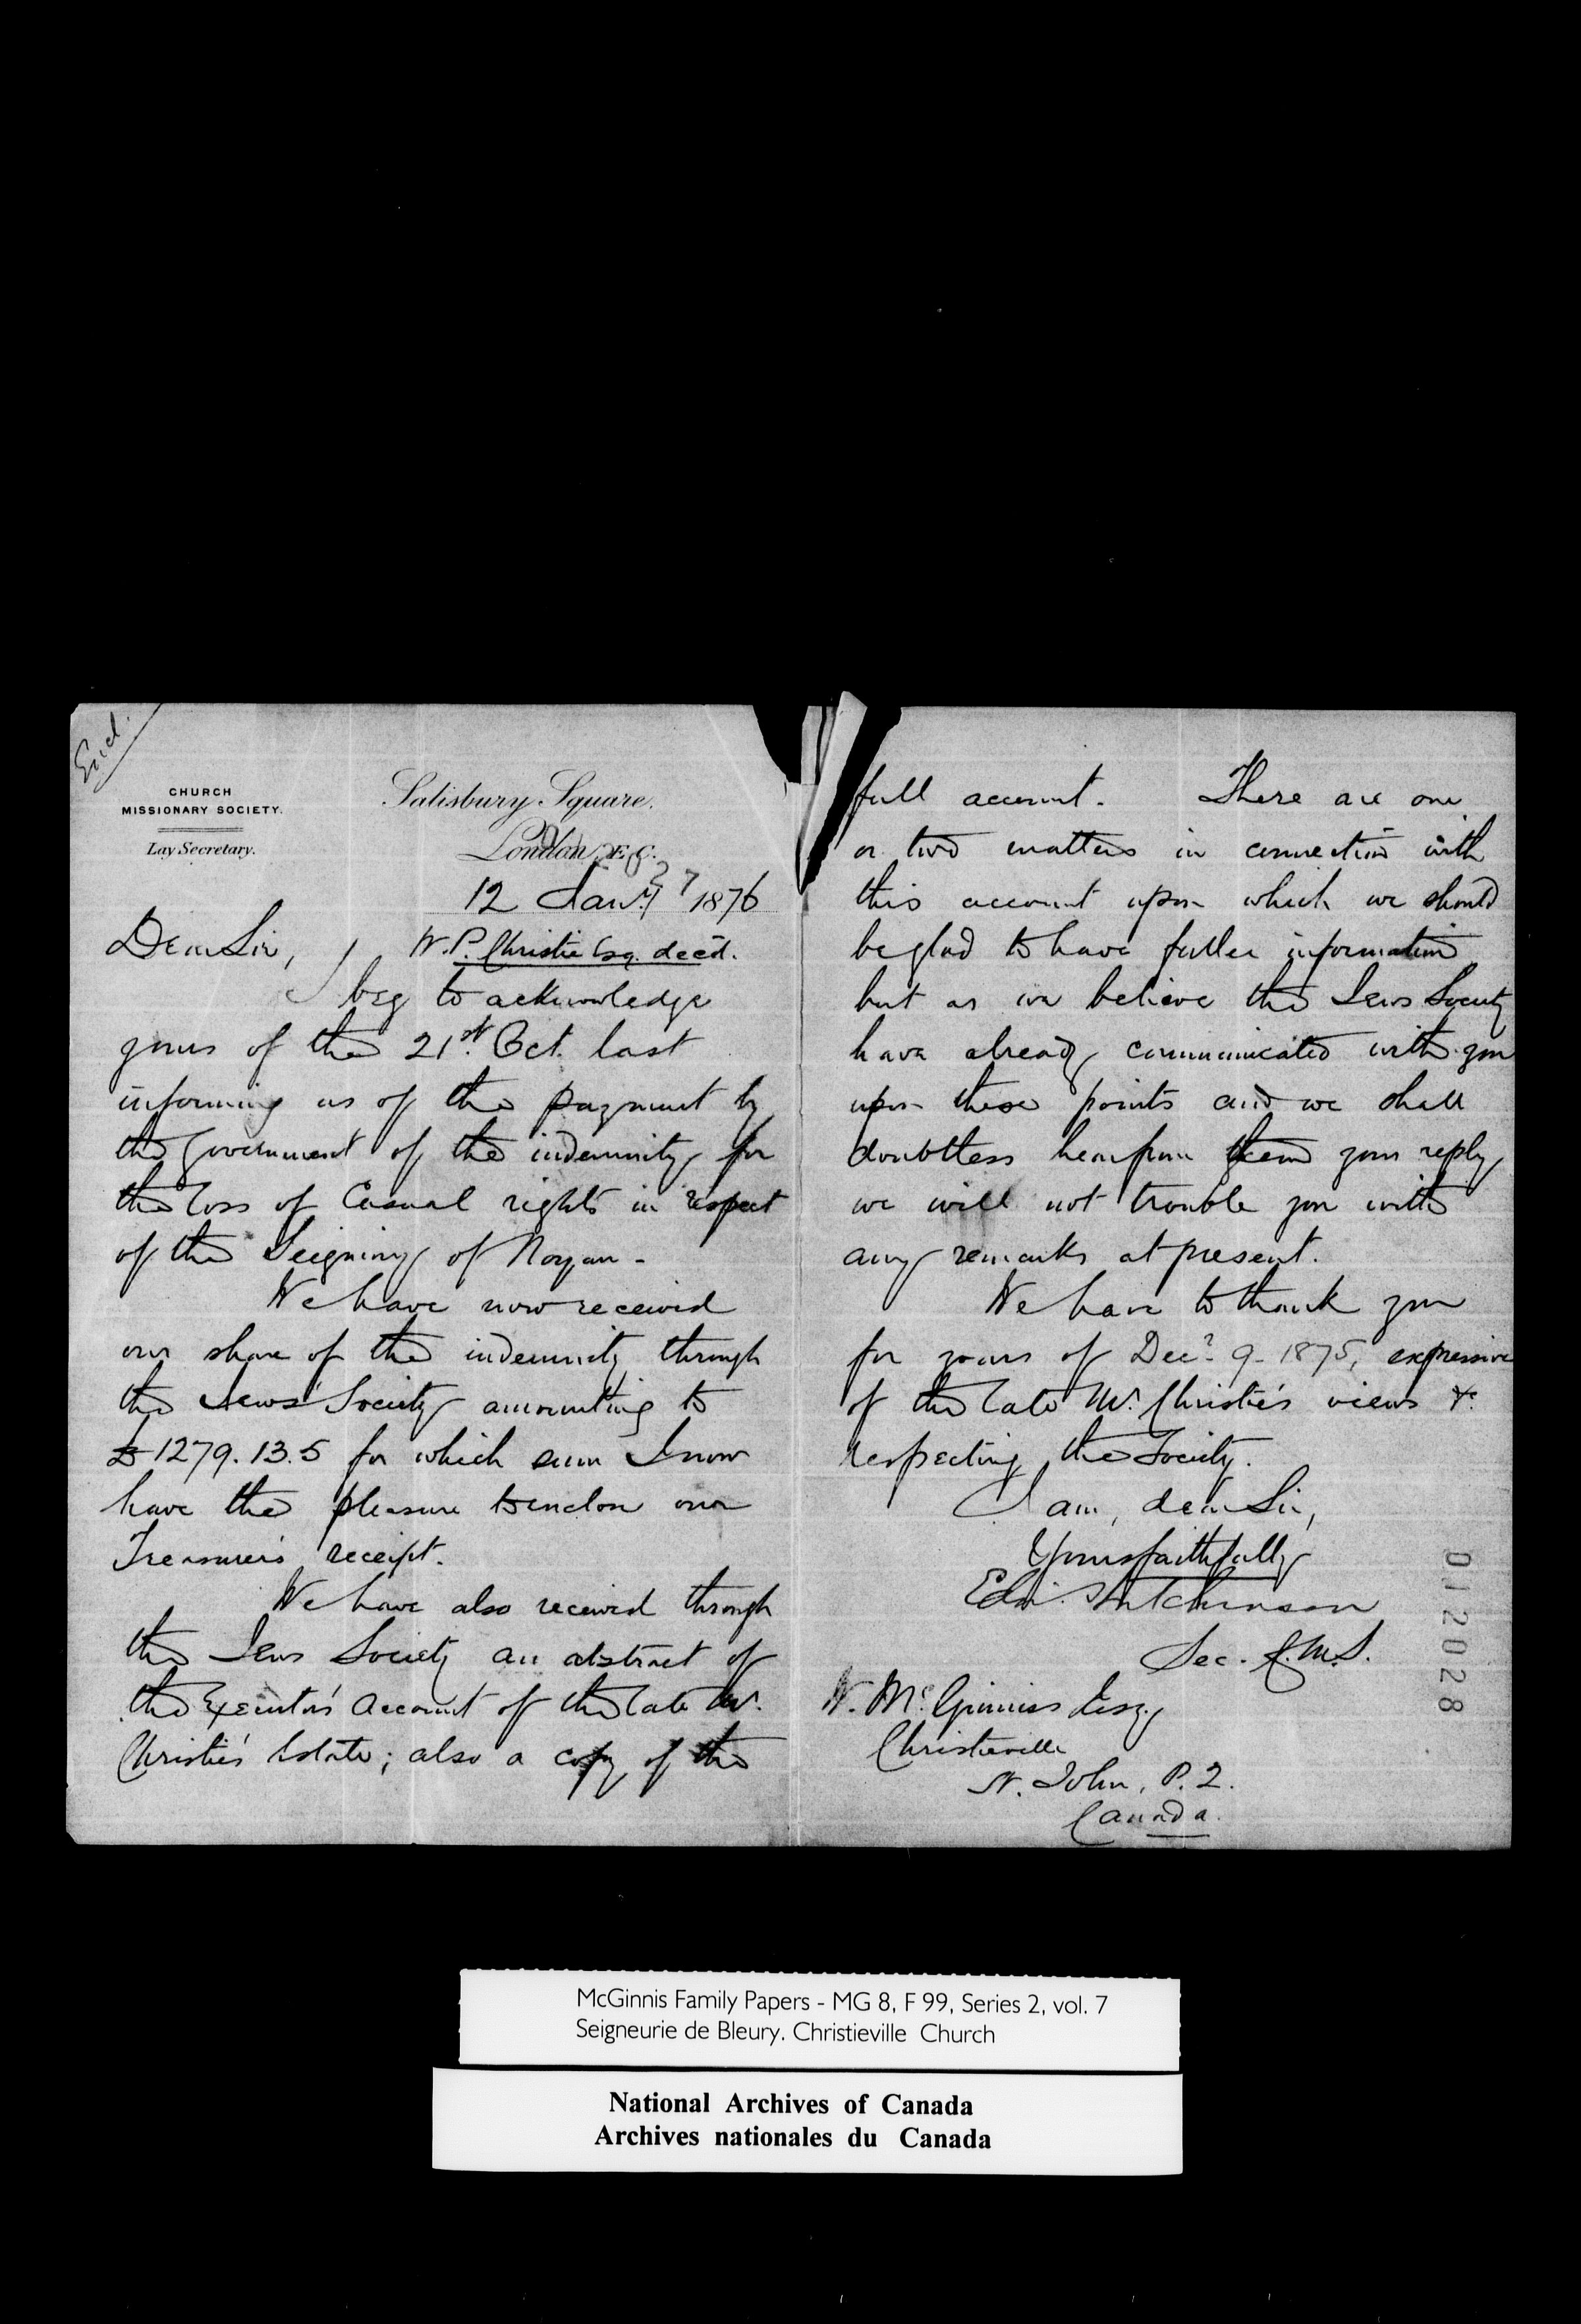 Encl.
CHURCH
MISSIONARY SOCIETY.
Lay Secretary.
Salisbury Square,
London, E.C.
12 Jany 1876
Dear Sir,
W. P. Christie Esq. decd.
I beg to acknowledge
yours of the 21st Oct. last
informing us of the payment by
the Government of the indemnity for
the loss of Casual rights in respect
of the Seigniory of Noyan -
We have now received
our share of the indemnity through
the Jews' Society amounting to
£1279.13.5 for which sum I now
have the pleasure to enclose our
Treasurer's receipt.
We have also received through
the Jews Society an abstract of
the Executors' Account of the late Mr.
Christie's Estate; also a copy of the
full account. There are one
or two matters in connection with
this account upon which we should
be glad to have fuller information
but as we believe the Jews Society
have already communicated with you
upon these points and we shall
doubtless hear from them your reply,
we will not trouble you with
any remarks at present.
We have to thank you
for yours of Decr 9 - 1875, expressive
of the late Mr. Christie's views &c
respecting the Society.
I am, dear Sir,
Yours faithfully
Edw. Hutchinson
Sec. C.M.S.
W. McGinnis Esq.,
Christieville
St. John, P.Q.
Canada.
012028
McGinnis Family Papers - MG 8, F 99, Series 2, vol. 7
Seigneurie de Bleury. Christieville Church
National Archives of Canada
Archives nationales du Canada